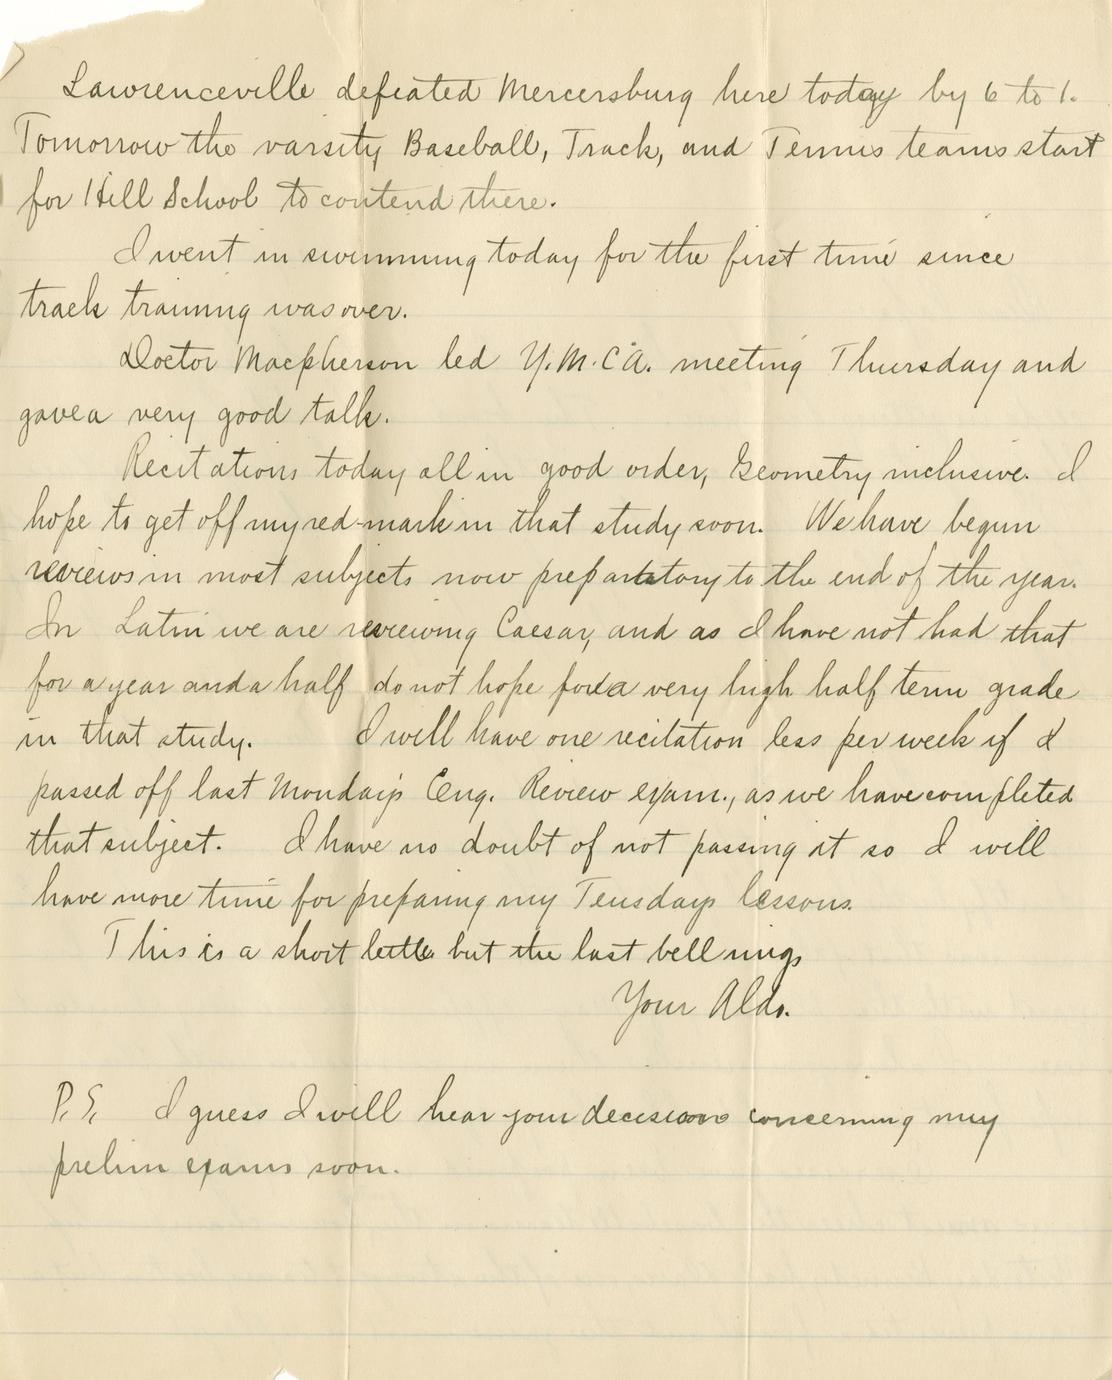 Lawrenceville defeated Mercersburg here today by 6 to 1.
Tomorrow the varsity Baseball, Track, and Tennis teams start
for Hill School to contend there.
I went in swimming today for the first time since
track training was over.
Doctor Macpherson led Y.M.C.A. meeting Thursday and
gave a very good talk.
Recitations today all in good order, Geometry inclusive. I
hope to get off my red-mark in that study soon. We have begun
reviews in most subjects now preparatory to the end of the year.
In Latin we are reviewing Caesar, and as I have not had that
for a year and a half do not hope for a very high half term grade
in that study. I will have one recitation less per week if I
passed off last Monday's Eng. Review exam., as we have completed
that subject. I have no doubt of not passing it so I will
have more time for preparing my Teusdays lessons.
This is a short letter but the last bell rings
Your Aldo.
P.S. I guess I will hear your decision concerning my
prelim exams soon.